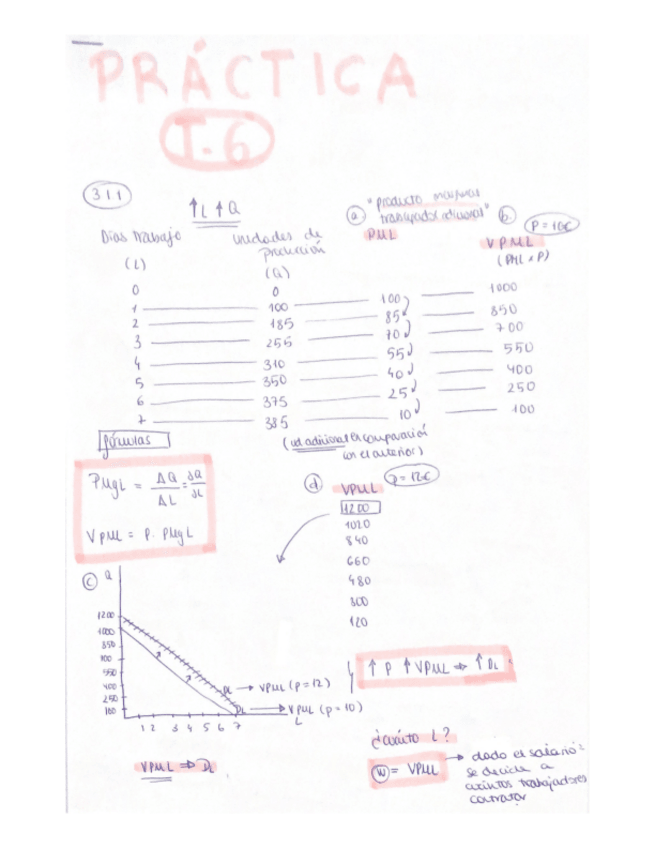 PRÁCTICA
T.6
311
↑L ↑Q
a "producto marginal
trabajador adicional"
b P = 10€
Días trabajo
Unidades de
Producción
PML
VPML
(PML x P)
(L)
(Q)
0 0
1 100 100 1000
2 185 85 850
3 255 70 700
4 310 55 550
5 350 40 400
6 375 25 250
7 385 10 100
fórmulas
(ud adicional en comparación
con el anterior)
PMgL = ΔQ/ΔL = ∂Q/∂L
VPML = P · PMgL
d VPML p = 12€
1200
1020
840
660
480
300
120
c Q
1200
1000
850
700
550
400
250
100
1 2 3 4 5 6 7
L
DL → VPML (p = 12)
DL → VPML (p = 10)
↑ P ↑ VPML ⇒ ↑ DL
VPML ⇒ DL
¿cuánto L?
W = VPML → dado el salario:
se decide a
cuántos trabajadores
contratar